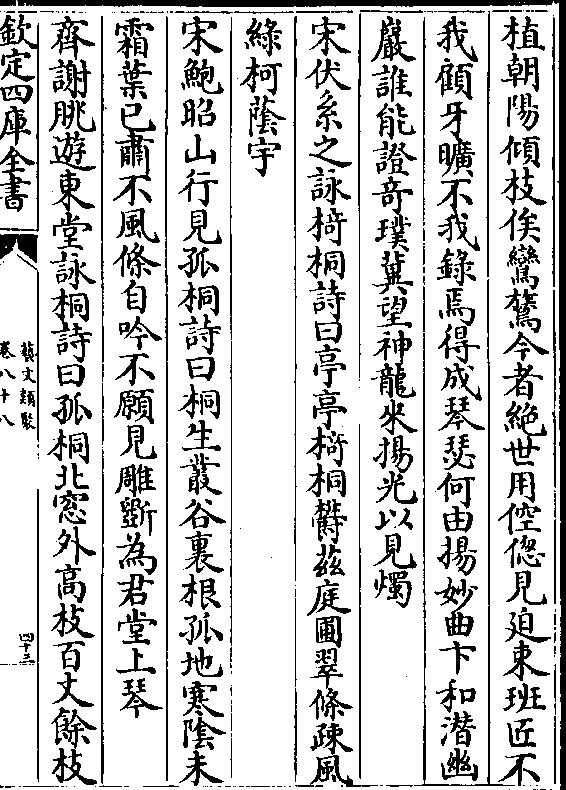 植朝陽傾枝俟鸞鷟今者絶世用倥偬見廹束班匠不
我顧牙曠不我錄焉得成琴瑟何由揚妙曲卞和潛幽
巖誰能證竒璞冀望神龍來揚光以見燭
宋伏系之詠椅桐詩曰亭亭椅桐欝兹庭圃翠條疎風
綠柯蔭宇
宋鮑昭山行見孤桐詩曰桐生叢谷裏根孤地寒陰未
霜葉已肅不風條自吟不願見雕斵為君堂上琴
齊謝朓遊東堂詠桐詩曰孤桐北窓外高枝百丈餘枝
欽定四庫全書
藝文類聚
卷八十八
四十三